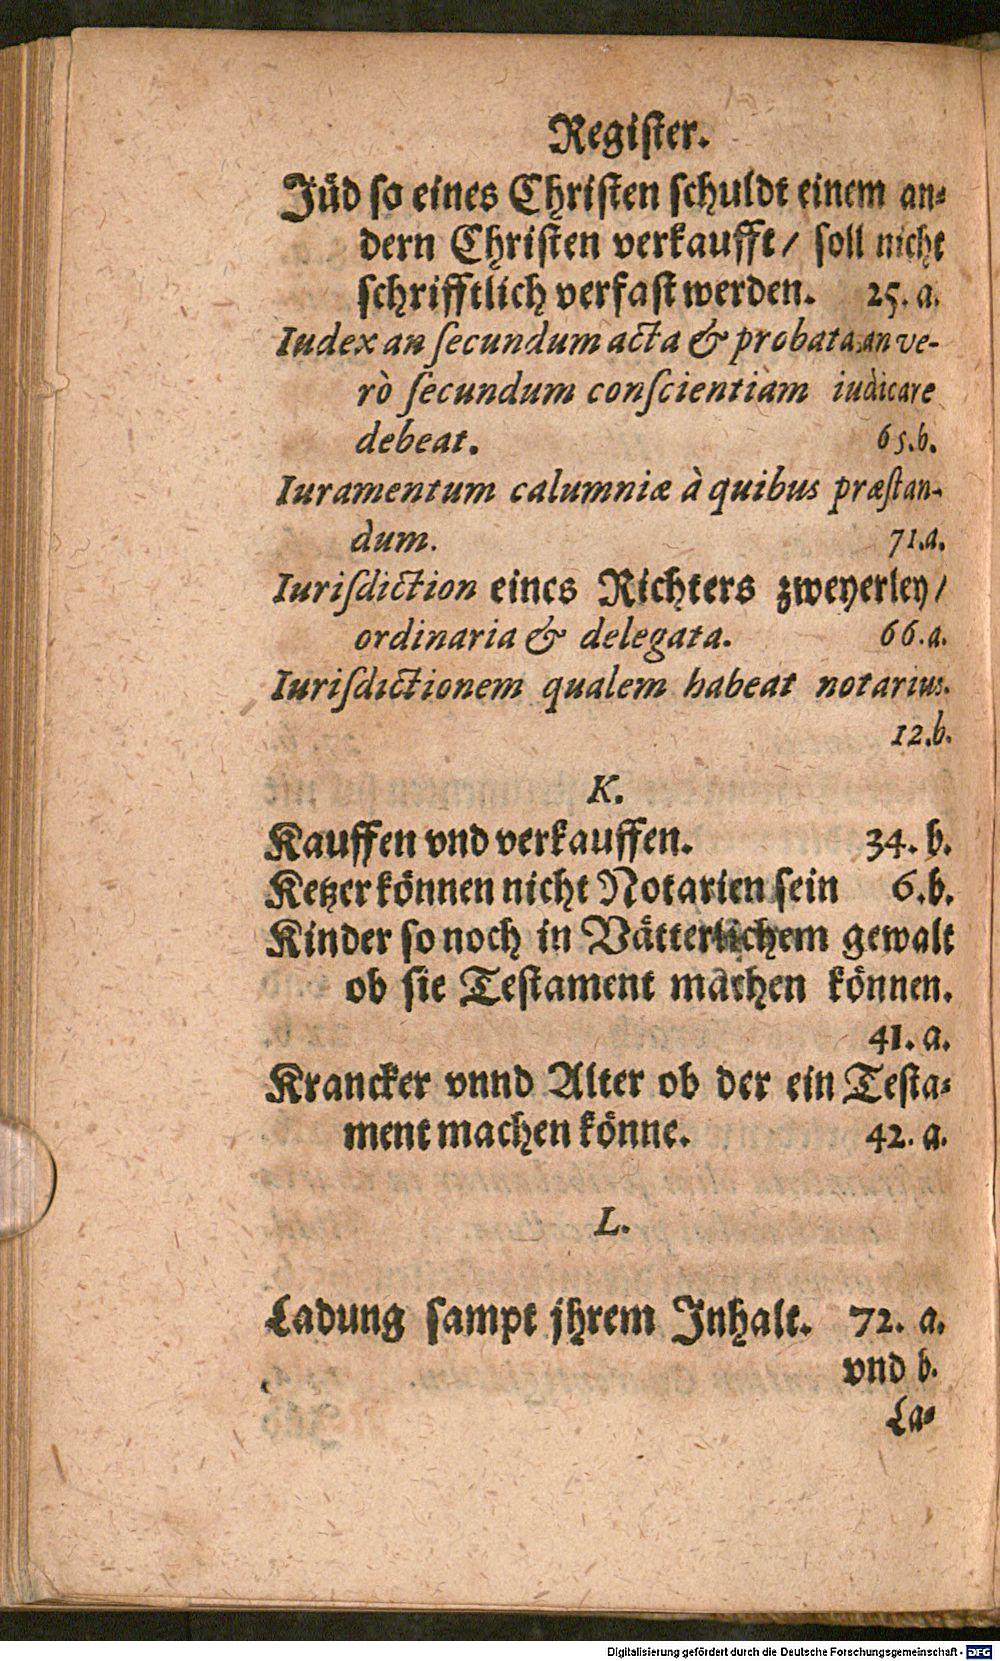 Register.
Jüd so eines Christen schuldt einem an-
dern Christen verkaufft/ soll nicht
schrifftlich verfast werden. 25. a.
Iudex an ſecundum acta & probata, an ve-
rò ſecundum conſcientiam iudicare
debeat. 65.b.
Iuramentum calumniæ à quibus præſtan-
dum. 71.a.
Iuriſdiction eines Richters zweyerley/
ordinaria & delegata. 66.a.
Iuriſdictionem qualem habeat notarius.
12.b.
K.
Kauffen vnd verkauffen. 34. b.
Ketzer können nicht Notarien sein 6.b.
Kinder so noch in Vätterlichem gewalt
ob sie Testament machen können.
41. a.
Krancker vnnd Alter ob der ein Testa-
ment machen könne. 42. a.
L.
Ladung sampt jhrem Inhalt. 72. a.
vnd b.
La-
Digitalisierung gefördert durch die Deutsche Forschungsgemeinschaft - DFG